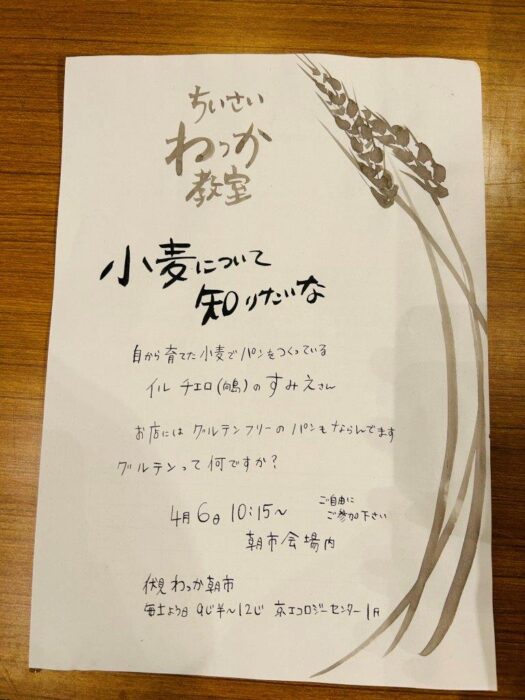 ちいさい
わっか
教室
小麦について
知りたいな
自から育てた小麦でパンをつくっている
イル チエロ(向島)のすみえさん
お店には グルテンフリーの パンもならんでます
グルテンって何ですか?
4月6日 10:15〜
ご自由に
ご参加下さい
朝市会場内
伏見 わっか朝市
毎土よう日 9じ半〜12じ 京エコロジーセンター1F